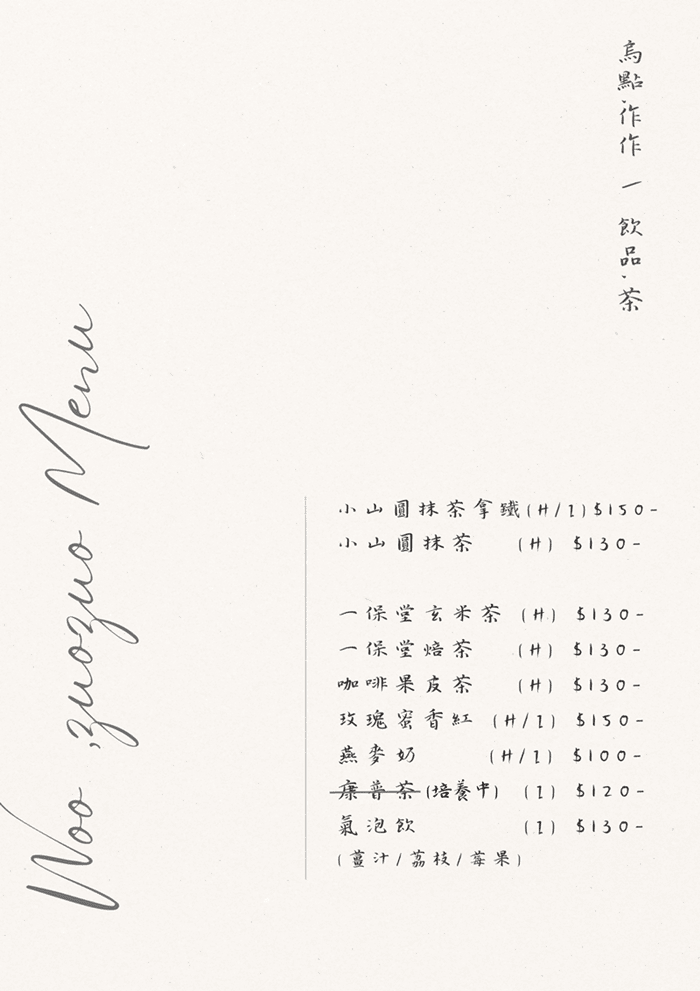 烏點作作 一 飲品·茶
Woo zuozuo Menu
小山圓抹茶拿鐵(H/I)$150-
小山圓抹茶 (H) $130-
一保堂玄米茶 (H) $130-
一保堂焙茶 (H) $130-
咖啡果皮茶 (H) $130-
玫瑰蜜香紅 (H/I) $150-
燕麥奶 (H/I) $100-
康普茶(培養中) (I) $120-
氣泡飲 (I) $130-
(薑汁/荔枝/莓果)